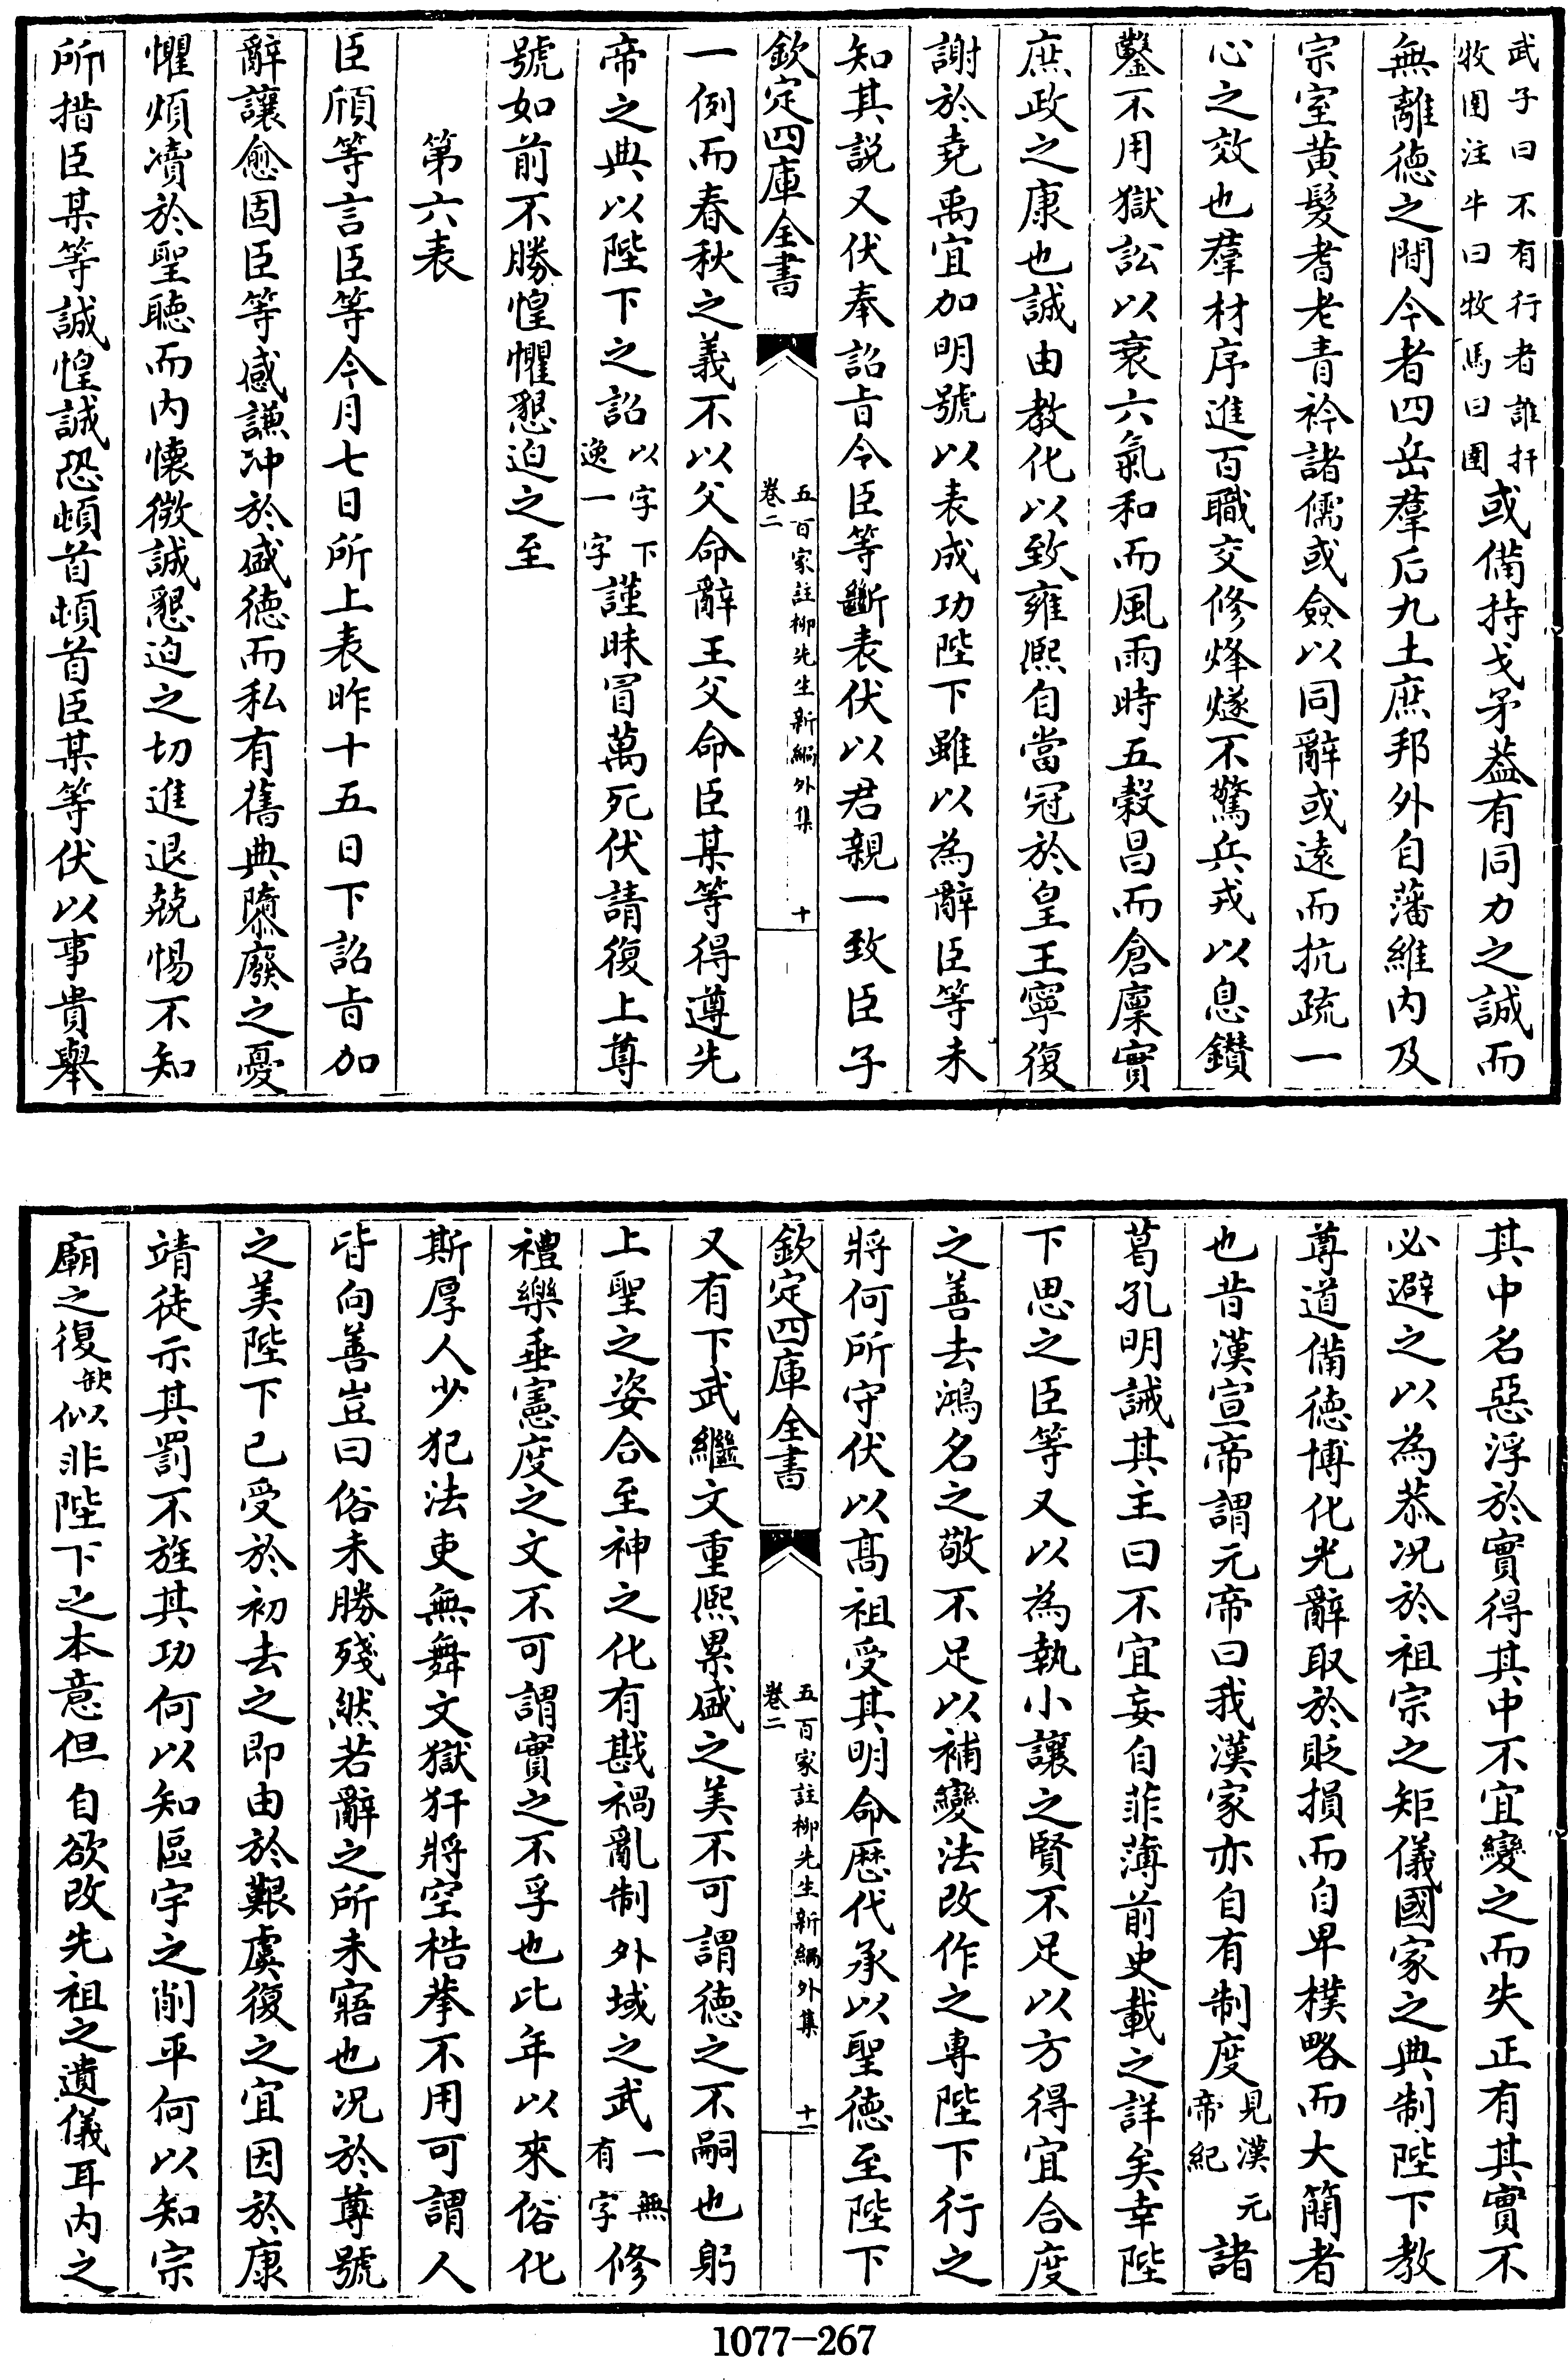 武子曰不有行者誰扞
牧圉注牛曰牧馬曰圉
或備持戈矛葢有同力之誠而
無離徳之間今者四岳羣后九土庶邦外自藩維内及
宗室黄髮耆老青衿諸儒或僉以同辭或逺而抗疏一
心之效也羣材序進百職交修烽燧不驚兵戎以息鑚
鑿不用獄訟以衰六氣和而風雨時五穀昌而倉廩實
庶政之康也誠由教化以致雍熈自當冠於皇王寧復
謝於堯禹宜加明號以表成功陛下雖以為辭臣等未
知其説又伏奉詔旨令臣等斷表伏以君親一致臣子
欽定四庫全書
五百家註柳先生新編外集
卷二
十
一例而春秋之義不以父命辭王父命臣某等得遵先
帝之典以陛下之詔
以字下
逸一字
謹昧冒萬死伏請復上尊
號如前不勝惶懼懇迫之至
第六表
臣頎等言臣等今月七日所上表昨十五日下詔旨加
辭讓愈固臣等感謙冲於盛徳而私有舊典隳廢之憂
懼煩瀆於聖聽而内懐微誠懇迫之切進退兢惕不知
所措臣某等誠惶誠恐頓首頓首臣某等伏以事貴舉
其中名惡浮於實得其中不宜變之而失正有其實不
必避之以為恭况於祖宗之矩儀國家之典制陛下教
尊道備徳博化光辭取於貶損而自卑樸略而大簡者
也昔漢宣帝謂元帝曰我漢家亦自有制度
見漢元
帝紀
諸
葛孔明誡其主曰不宜妄自菲薄前史載之詳矣幸陛
下思之臣等又以為執小讓之賢不足以方得宜合度
之善去鴻名之敬不足以補變法改作之專陛下行之
將何所守伏以髙祖受其明命歴代承以聖徳至陛下
欽定四庫全書
五百家註柳先生新編外集
卷二
十一
又有下武繼文重熈累盛之美不可謂徳之不嗣也躬
上聖之姿合至神之化有戡禍亂制外域之武
一無
有字
修
禮樂垂憲度之文不可謂實之不孚也比年以來俗化
斯厚人少犯法吏無舞文獄犴將空梏拲不用可謂人
皆向善豈曰俗未勝殘然若辭之所未寤也况於尊號
之美陛下已受於初去之即由於艱虞復之宜因於康
靖徒示其罰不旌其功何以知區宇之削平何以知宗
廟之復
缺
似非陛下之本意但自欲改先祖之遺儀耳内之
1077-267